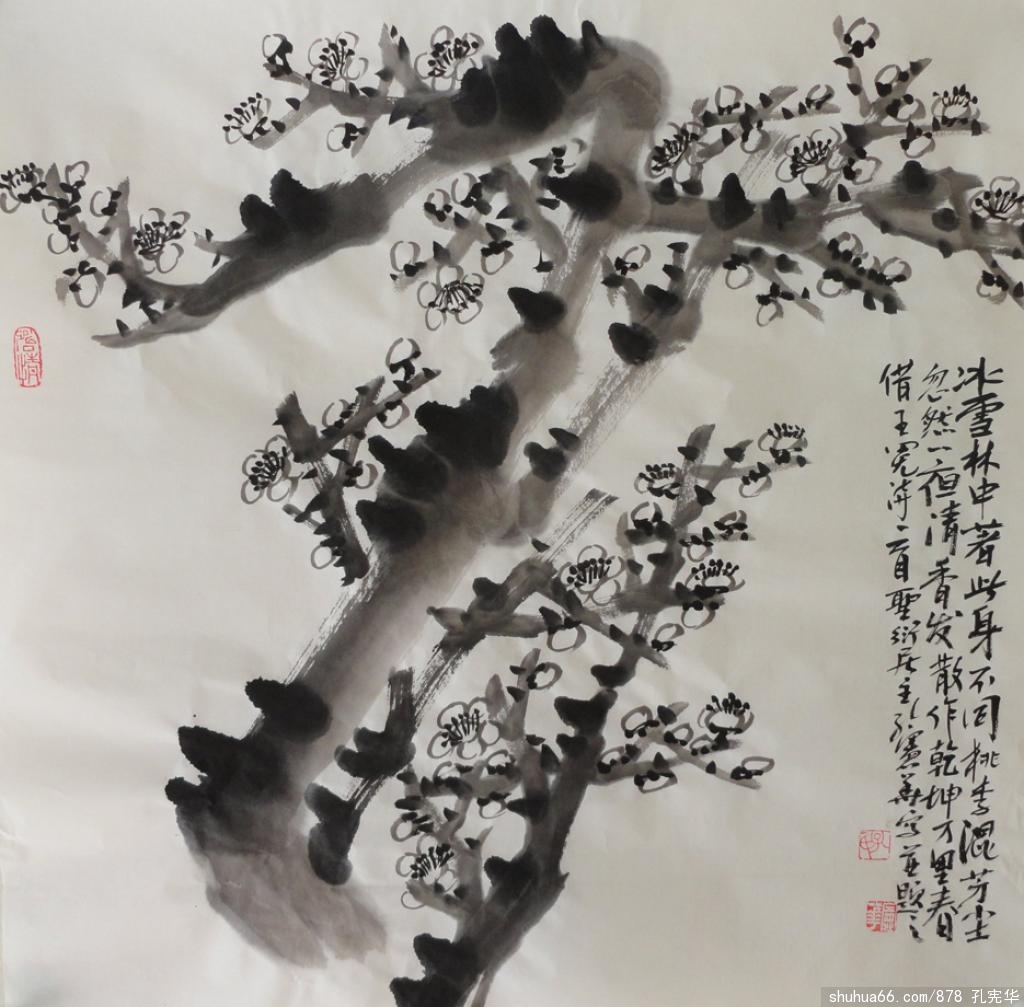 冰雪林中著此身不同桃李混芳尘
忽然一夜清香发散作乾坤万里春
借王冕诗一首聖衍居主孔憲華写並题之
shuhua66.com/878 孔宪华